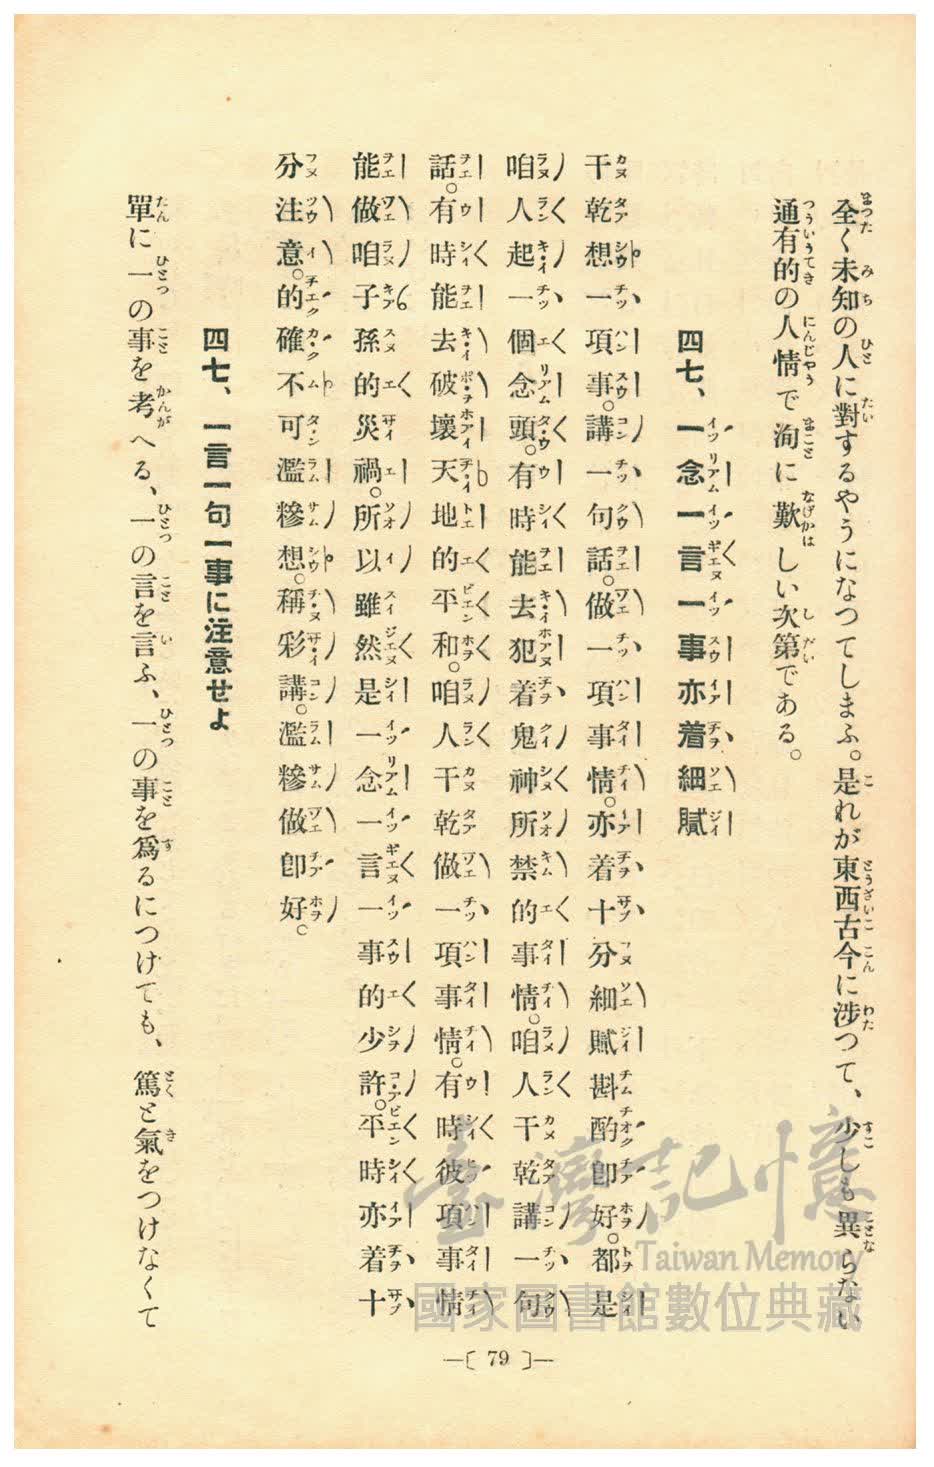 全く未知の人に對するやうになつてしまふ。是れが東西古今に涉つて、少しも異らない
通有的の人情で洵に歎しい次第である。
四七、一念一言一事亦着細膩
干乾想一項事。講一句話。做一項事情。亦着十分細膩斟酌卽好。都是
咱人起一個念頭。有時能去犯着鬼神所禁的事情。咱人干乾講一句
話。有時能去破壞天地的平和。咱人干乾做一項事情。有時彼項事情
能做咱子孫的災禍。所以雖然是一念一言一事的少許。平時亦着十
分注意。的確不可濫糝想。稱彩講。濫糝做卽好。
四七、一言一句一事に注意せよ
單に一の事を考へる、一の言を言ふ、一の事を爲るにつけても、篤と氣をつけなくて
—〔 79 〕—
臺灣記憶
Taiwan Memory
國家圖書館數位典藏